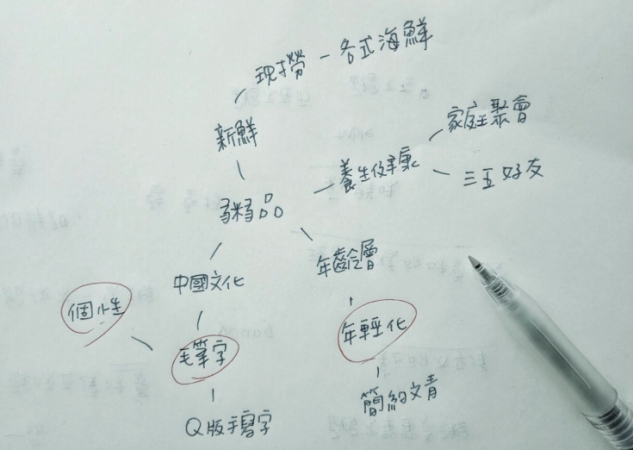 現撈 - 各式海鮮
新鮮
家庭聚會
養生健康
三五好友
粥品
年齡層
中國文化
個性
年輕化
毛筆字
簡約文青
Q版手寫字